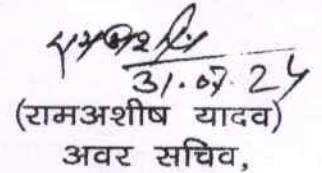 31.07.24
(रामअशीष यादव)
अवर सचिव,